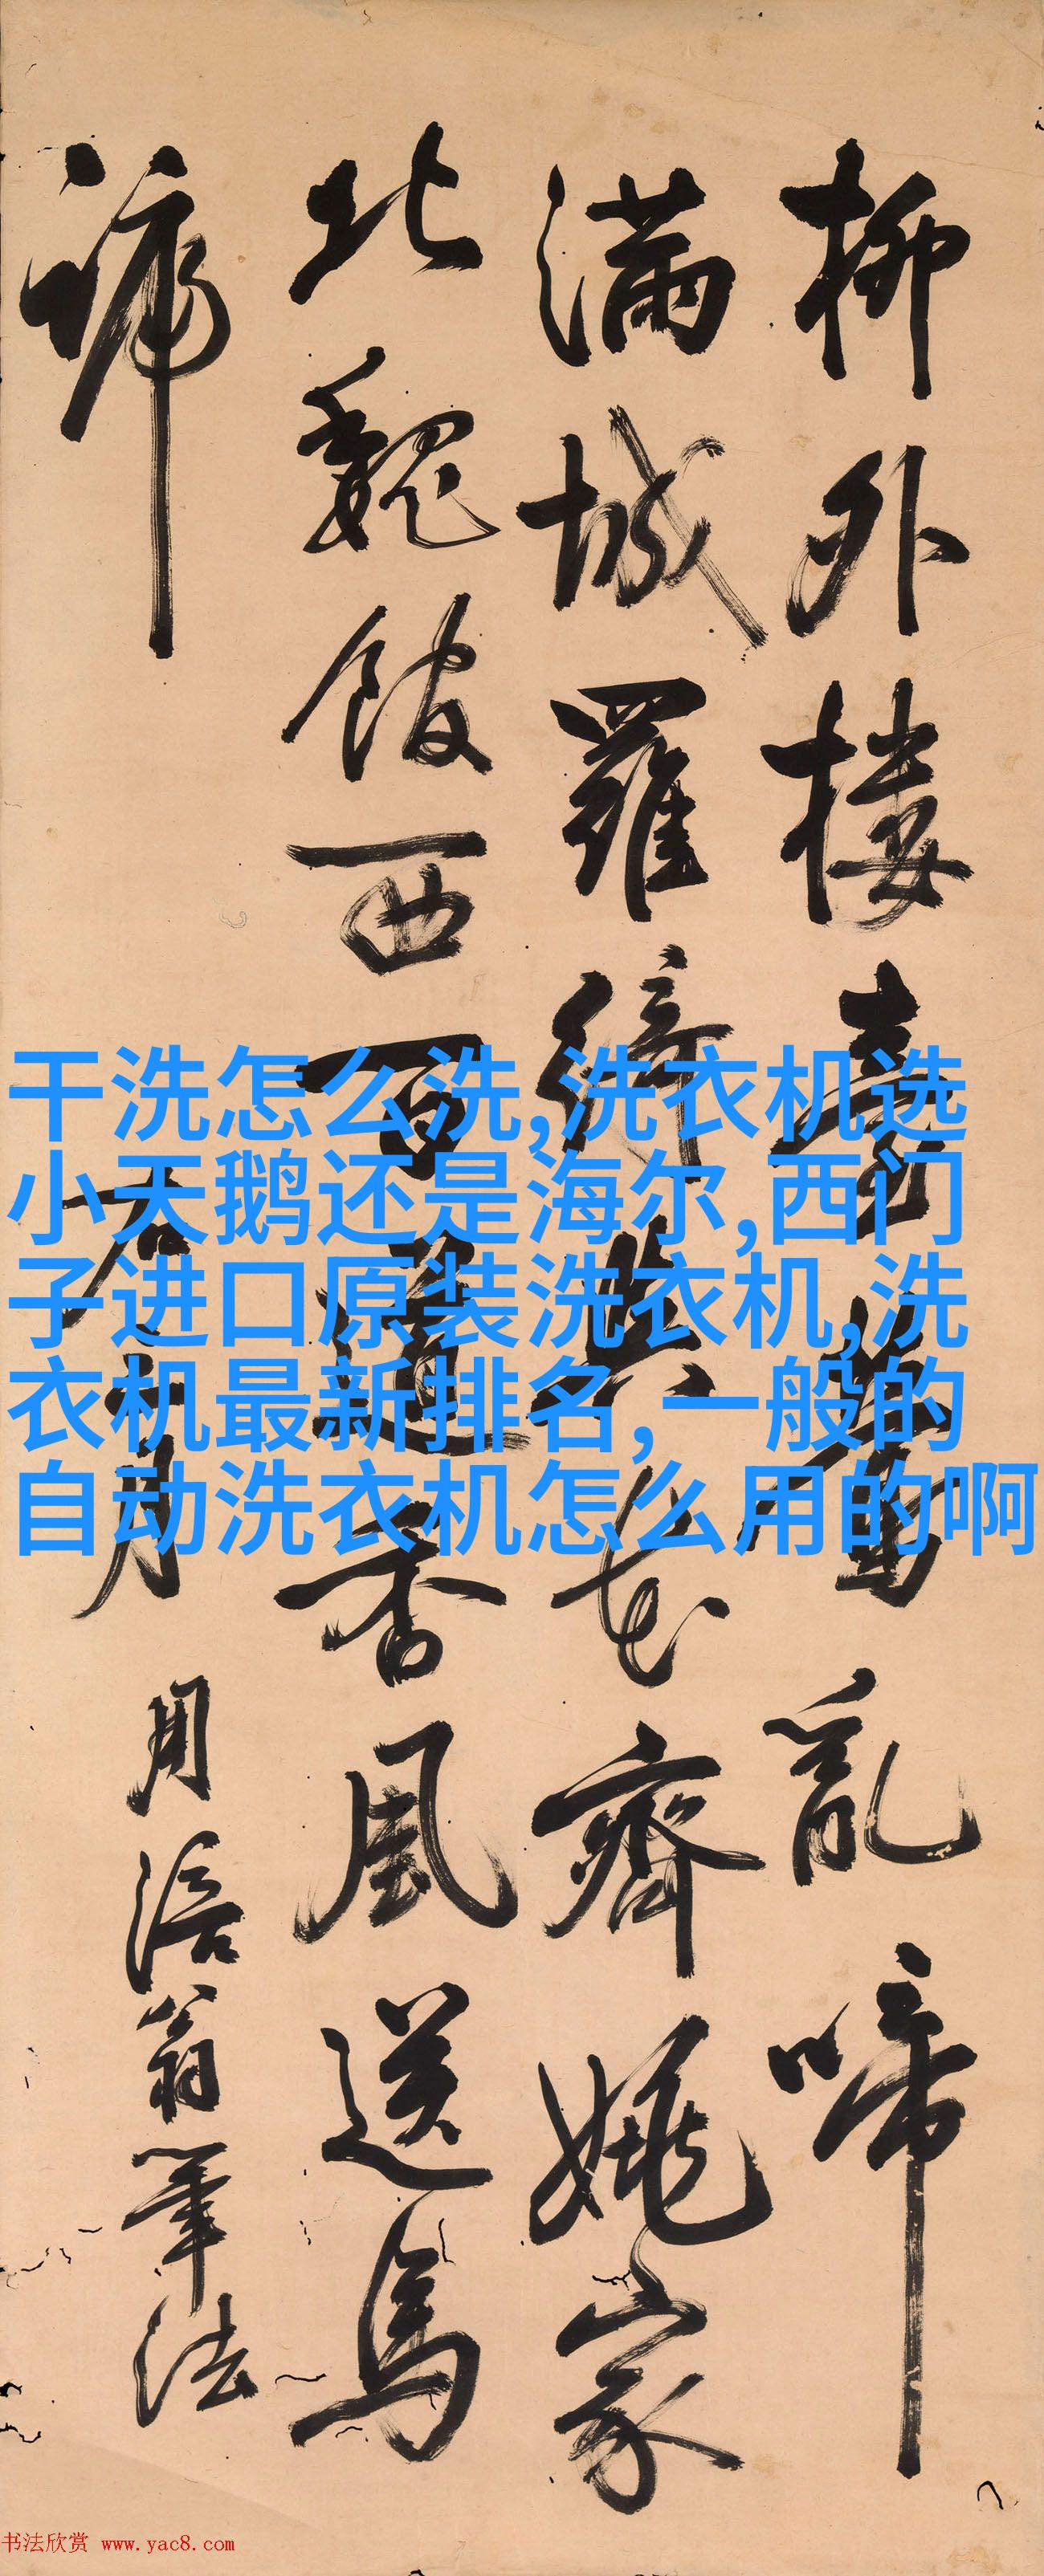 柳外樓亂啼
滿城羅花齊姚家
北魏館西百道香風送馬
蹄
右月
用涪翁筆法
干洗怎么洗,洗衣机选
小天鹅还是海尔,西门
子进口原装洗衣机,洗
衣机最新排名,一般的
自动洗衣机怎么用的啊
书法欣赏 www.yac8.com